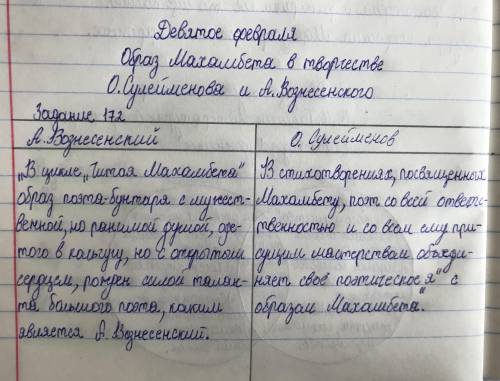 Девятое февраля
Образ Махамбета в творчестве
О. Сулейменова и А. Вознесенского
Задание 172
А. Вознесенский
„В цикле „Читая Махамбета"
образ поэта-бунтаря с мужест-
венной, но ранимой душой, оде-
того в кольчугу, но с открытым
сердцем, рождён силой талан-
та большого поэта, каким
является А. Вознесенский.
О. Сулейменов
В стихотворениях, посвященных
Махамбету, поэт со всей ответс-
твенностью и со всем ему при-
сущим мастерством объеди-
няет своё поэтическое „я" с
образом Махамбета.